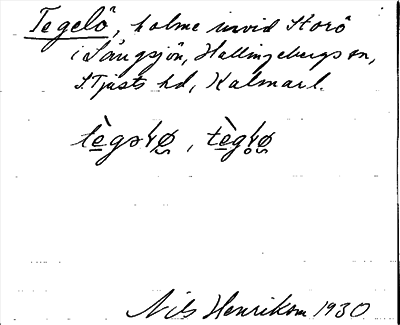 Tegelö, holme invid Storö
i Långsjön, Hallingebergs sn,
S. Tjusts hd, Kalmar l.
tègəḷø, tègḷø
Nils Henrikson 1930